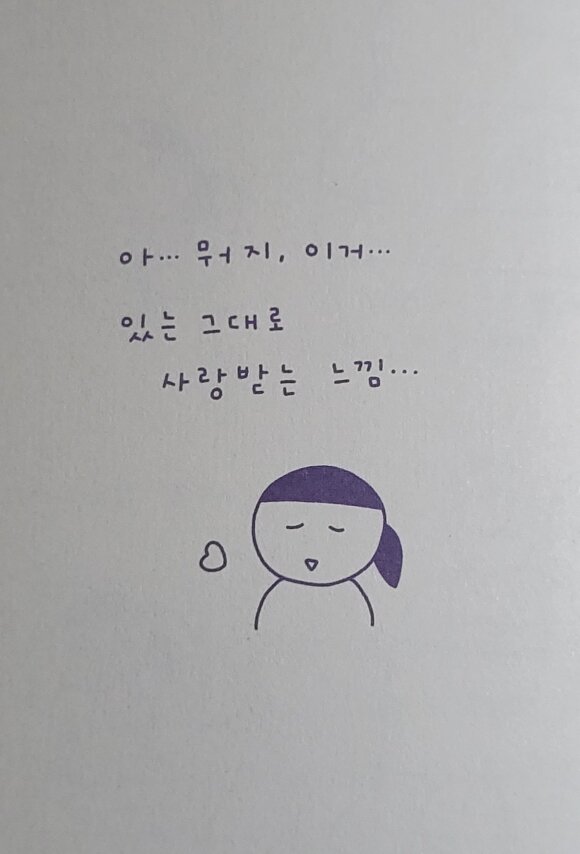 아... 뭐지, 이거...
있는 그대로
사랑받는 느낌...